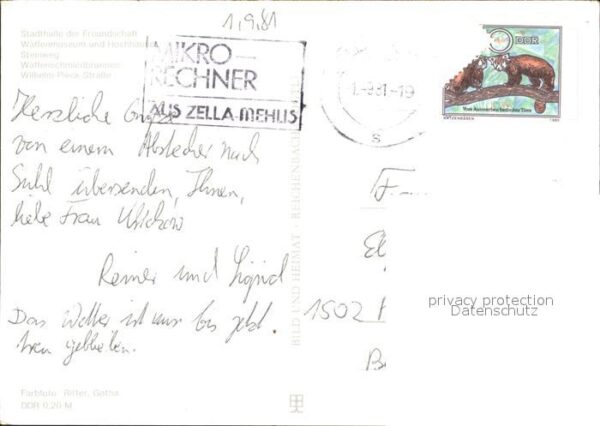 1.9.81
Stadthalle der Freundschaft
Waffenmuseum und Hochhäuser
Steinweg
Waffenschmiedbrunnen
Wilhelm-Pieck-Straße
MIKRO-
RECHNER
AUS ZELLA-MEHLIS
-1.-9.81-19
S
DDR
Vom Aussterben bedrohte Tiere
KATZENBÄREN
Herzliche Grüße
von einem Abstecher nach
Suhl übersenden, Ihnen,
liebe Frau
Reiner und Sigrid
Das Wetter ist uns bis jetzt
treu geblieben.
F
El
1502 P
Be
BILD UND HEIMAT · REICHENBACH
privacy protection
Datenschutz
Farbfoto: Ritter, Gotha
DDR 0,20 M